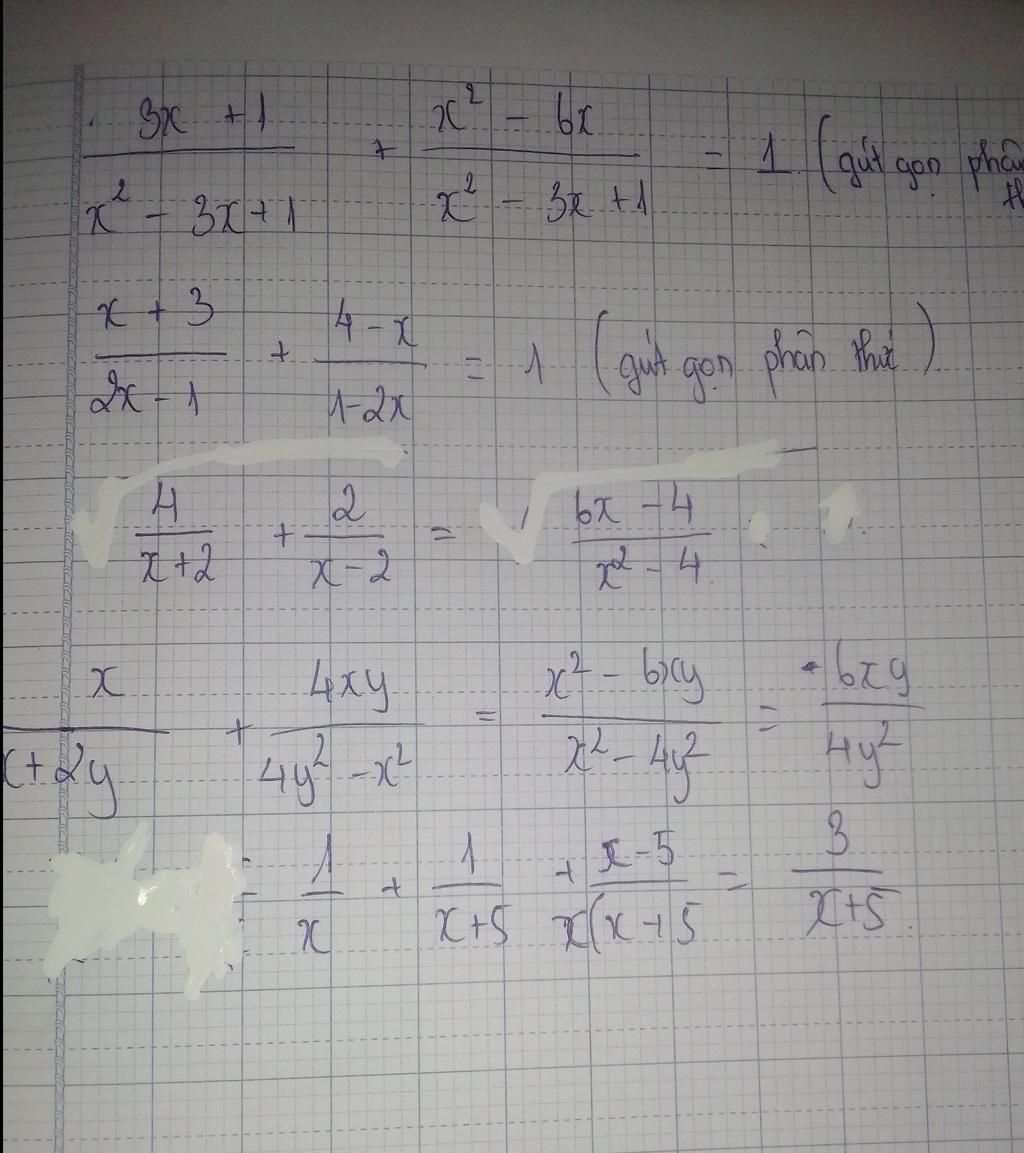 (3x + 1)/(x² - 3x + 1) + (x² - 6x)/(x² - 3x + 1) = 1 (gút gọn phân
(x + 3)/(2x - 1) + (4 - x)/(1 - 2x) = 1 (gút gọn phân thức)
4/(x + 2) + 2/(x - 2) = (6x - 4)/(x² - 4)
x/(x + 2y) + 4xy/(4y² - x²) = (x² - 6xy)/(x² - 4y²) = -6xy/4y²
= 1/x + 1/(x + 5) + (x - 5)/(x(x + 5) = 3/(x + 5).